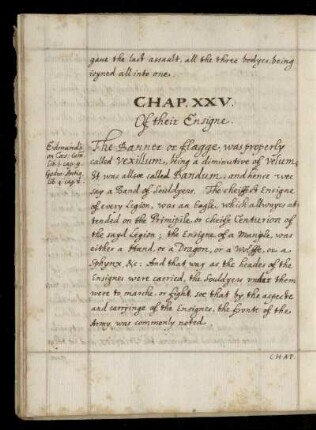 gaue the last assault, all the three bodyes, being
ioyned all into one.
CHAP. XXV.
Of their Ensigne.
Edmunds
on Caes: Com.
lib: 1. cap. 9.
lib. 4. cap. 5.
The Banner or flagge, was properly
called Vexillum, being a diminutive of Velum;
It was allso called Bandum, and hence wee
say a Band of Souldyers. The cheiffest Ensigne
of every Legion, was an Eagle, which allwayes at=
tended on the Primipile, or cheife Centurion of
the sayd Legion; the Ensigne of a Maniple, was
either a Hand, or a Dragon, or a Wolffe, or a
Sphynx, &c: And that way as the header of the
Ensignes were carried, the Souldyers under them
were to marche, or fight, soe that by the aspecte
and carryinge of the Ensignes, the fronte of the
Army, was commonly noted.
CHAP.